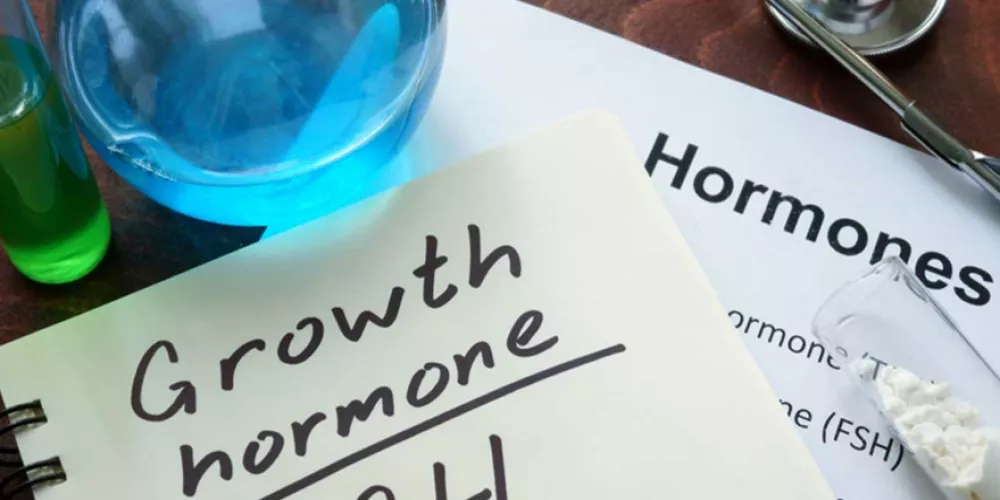 Growth
hormone
Hormones
ormone
ne (FSH)